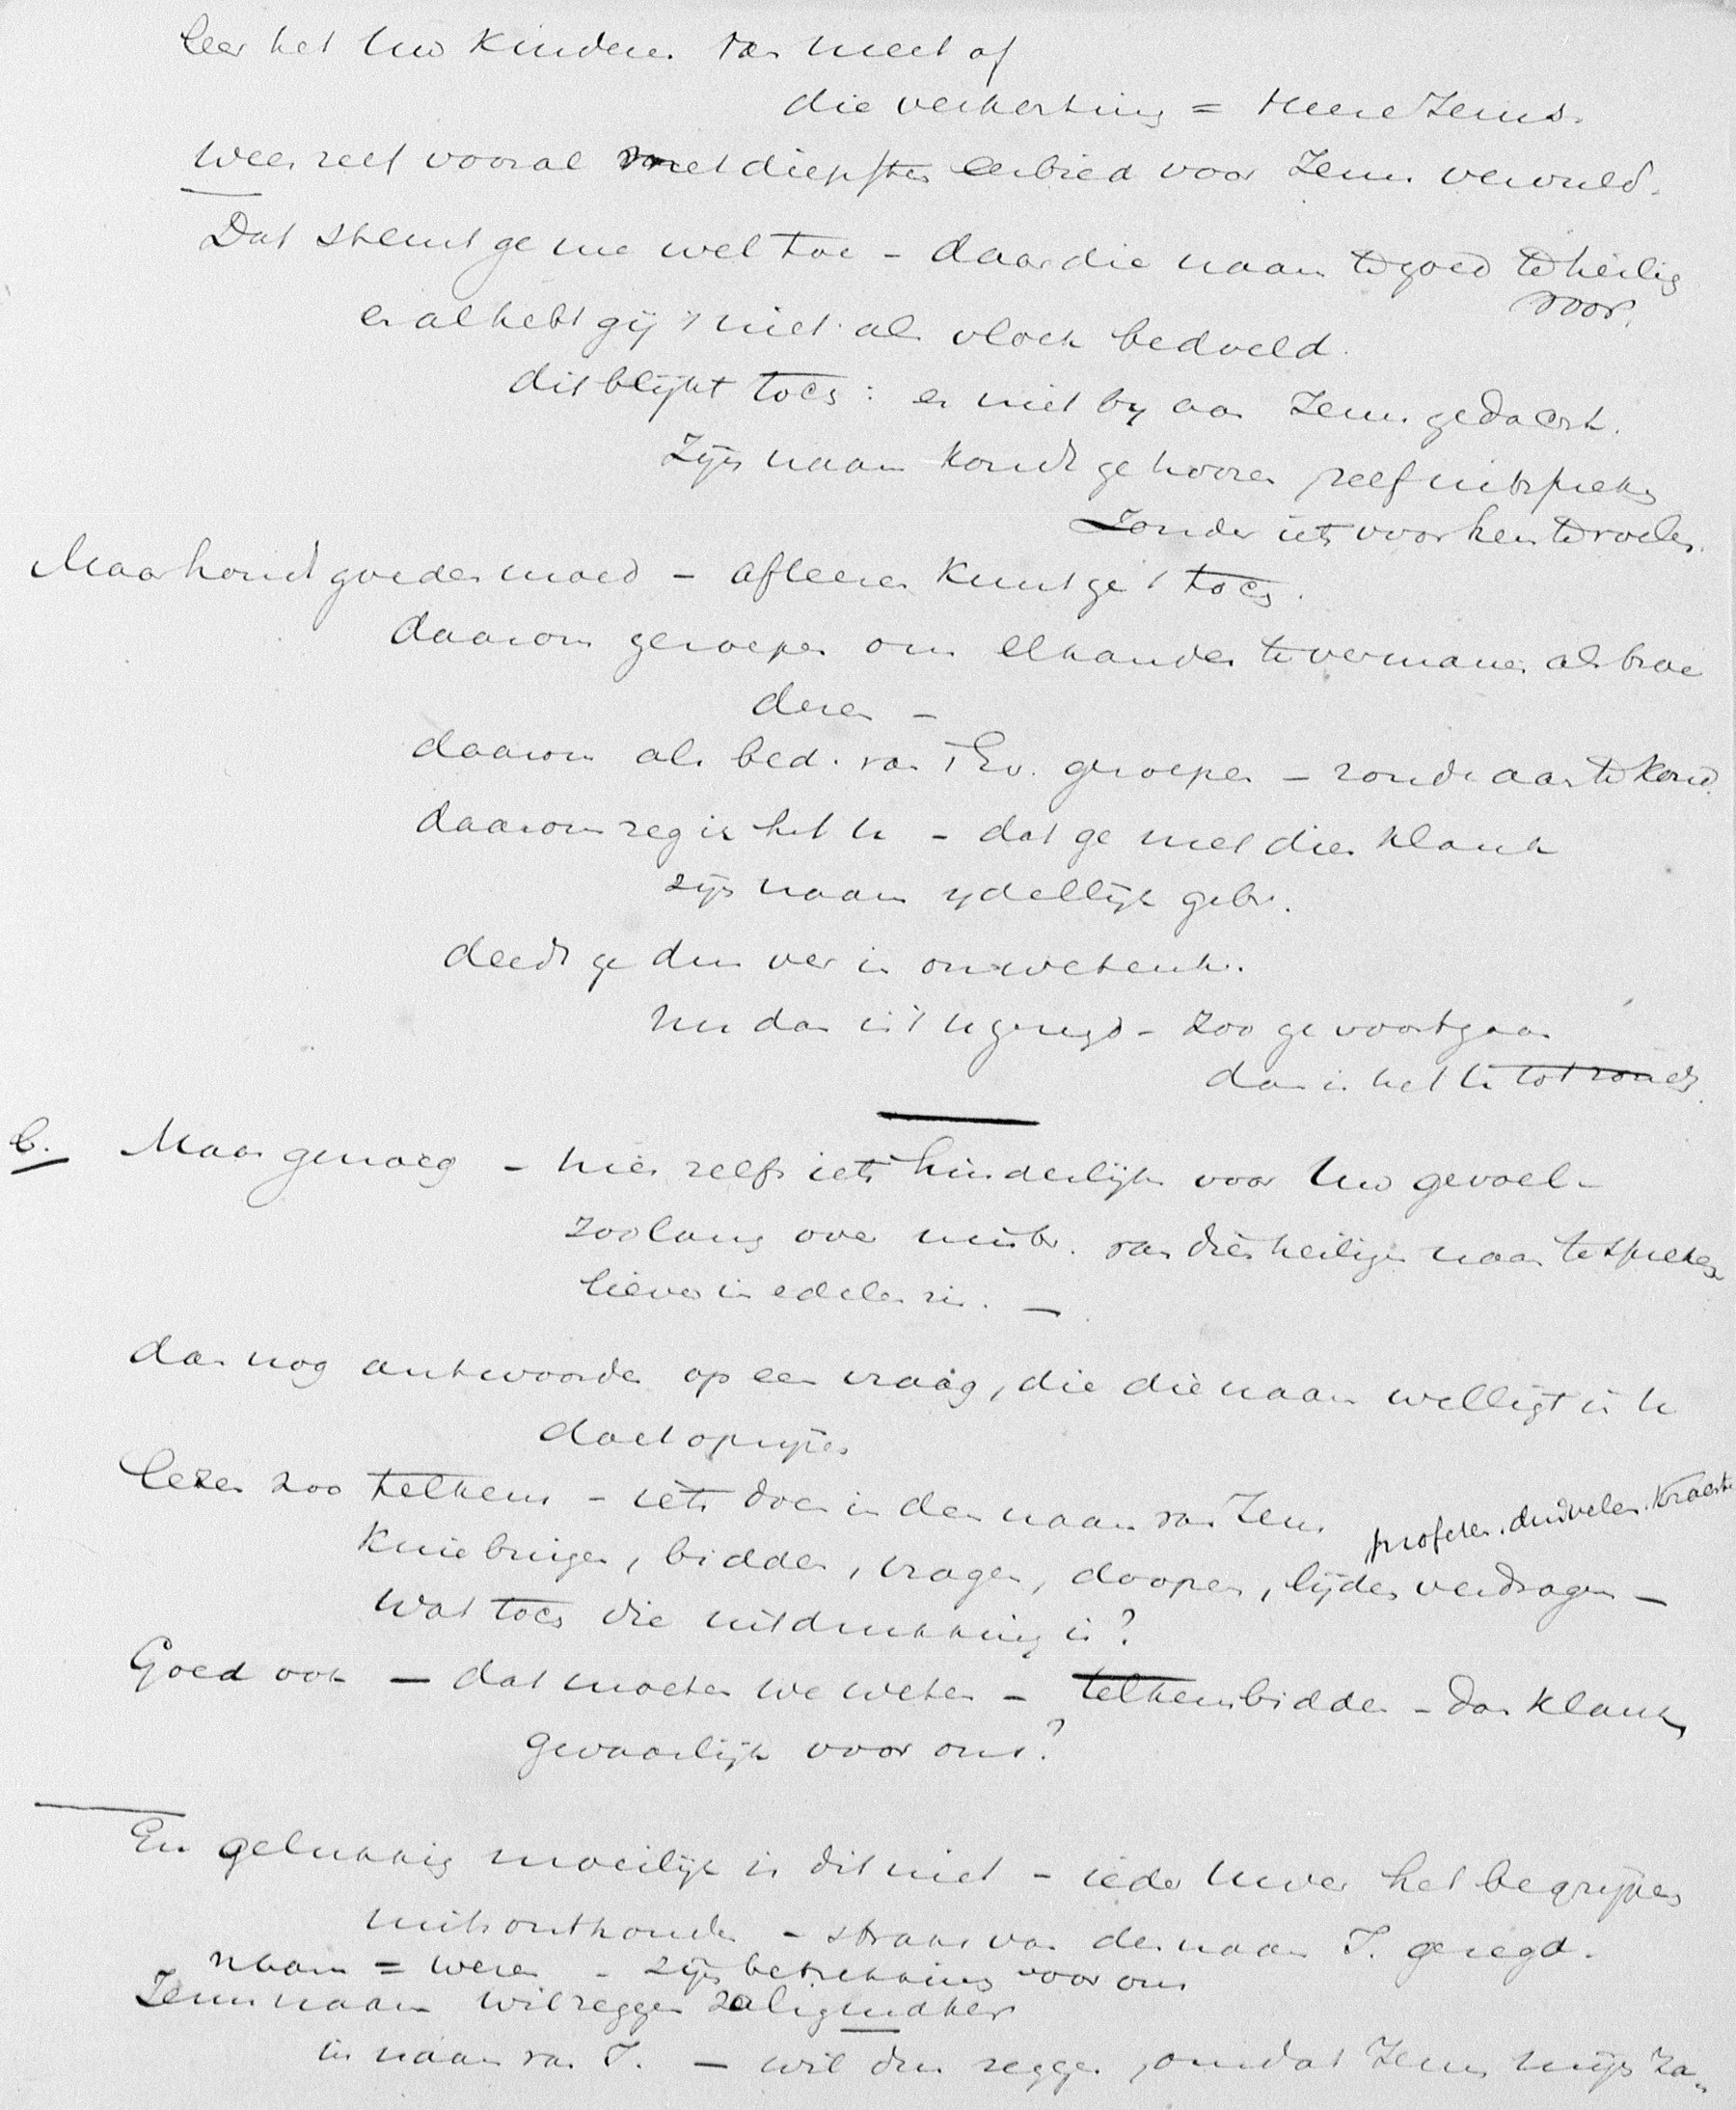 Leer het Uw Kinderen van meet af
die verkorting = Heere Jezus.
Wees zelf vooral met diepsten eerbied voor Jezus vervuld.
Dat stemt ge me wel toe - daar die naam te goed te heilig
voor.
en al hebt gij 't niet als vloek bedoeld.
dit blijkt toch: er niet by aan Jezus gedacht.
Zijn naam kondt ge hooren, zelf uitspreken
Zonder iets voor hem te voelen.
Maar houd goeden moed - afleeren kunt ge 't toch.
daarom geroepen om elkander te vermanen als broe
deren -
daarom als bed. van 't Ev. geroepen - zonde aan te kond.
daarom zeg ik het U - dat ge met dien klank
zijn naam ydellijk gebr.
deedt ge dus ver in onwetenh.
Nu dan is 't U gezegd - zoo ge voortgaat
dan is het U tot zonde.
b. Maar genoeg - hier zelfs iets hinderlijks voor Uw gevoel -
zoolang over misbr. van dien heiligen naam te spreken
liever in edeler zin. -
dan nog antwoorden op een vraag, die die naam welligt in U
doet oprijzen
Lezen zoo telkens - iets doen in den naam van Jezus
profeter. duivelen. Krachten
Knie buigen, bidden, vragen, doopen, lijden verdragen -
Wat toch die uitdrukking is?
Goed ook - dat moeten we weten - telkens bidden - dan klank
gevaarlijk voor ons?
En gelukkig moeilijk is dit niet - ieder Uwer het begrijpen
mits onthouden - straks van den naam J. gezegd.
naam = wezen - zijn betrekking voor ons
Jezus naam wil zeggen zaligmaker
in naam van J. - wil dus zeggen, omdat Jezus mijn Za-